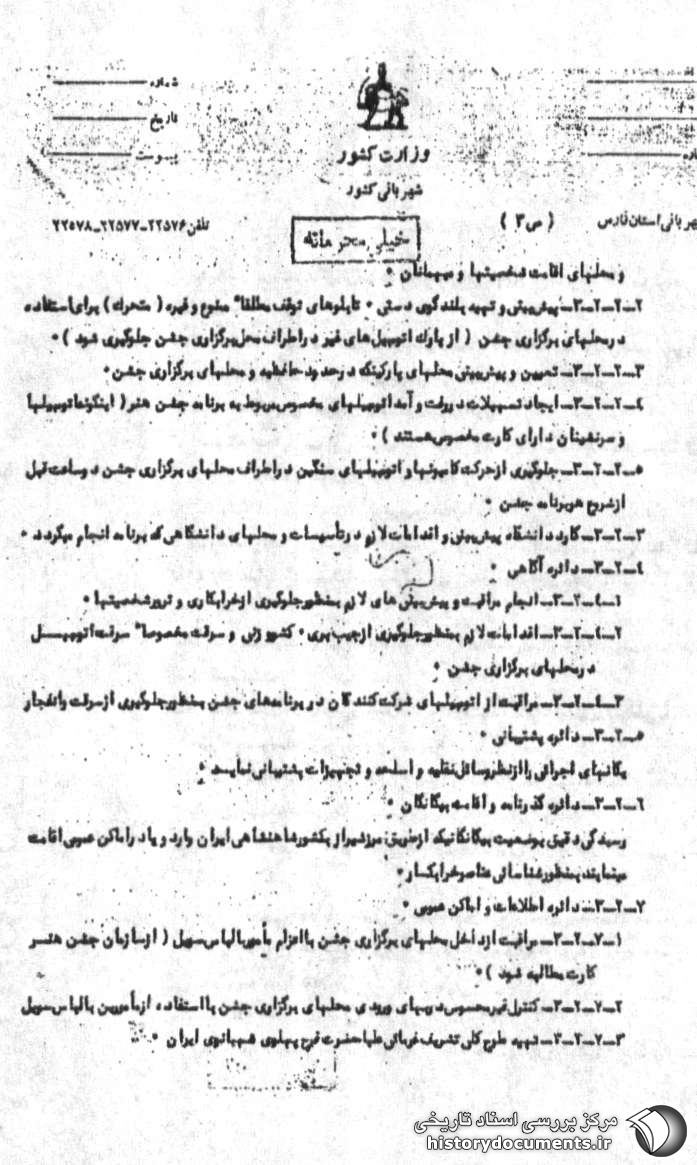 شماره
تاریخ
پیوست
وزارت کشور
شهربانی کشور
شهربانی استان فارس
( ص ۳ )
خیلی محرمانه
تلفن ۲۲۵۷۶-۲۲۵۷۷-۲۲۵۷۸
و محلهای اقامت شخصیتها و میهمانان .
۲-۲-۲-۳- پیش‌بینی و تهیه بلندگوی دستی . تابلوهای توقف مطلقا" ممنوع و غیره ( متحرک ) برای استفاده
در محلهای برگزاری جشن ( از پارک اتومبیل‌های غیر در اطراف محل برگزاری جشن جلوگیری شود ) .
۳-۲-۲-۳- تعیین و پیش‌بینی محلهای پارکینگ در حدود حافظیه و محلهای برگزاری جشن .
۴-۲-۲-۳- ایجاد تسهیلات در رفت و آمد اتومبیلهای مخصوص مربوط به برنامه جشن هنر ( اینگونه اتومبیلها
و سرنشینان دارای کارت مخصوص هستند ) .
۵-۲-۲-۳- جلوگیری از حرکت کامیونها و اتومبیلهای سنگین در اطراف محلهای برگزاری جشن دو ساعت قبل
از شروع هر برنامه جشن .
۳-۲-۳- گارد دانشگاه پیش‌بینی و اقدامات لازم در تأسیسات و محلهای دانشگاهی که برنامه انجام میگردد .
۴-۲-۳- دائره آگاهی .
۱-۴-۲-۳- انجام مراقبت و پیش‌بینی های لازم بمنظور جلوگیری از خرابکاری و ترور شخصیتها .
۲-۴-۲-۳- اقدامات لازم بمنظور جلوگیری از جیب‌بری . کشوزنی و سرقت مخصوصا" سرقت اتومبیل
در محلهای برگزاری جشن .
۳-۴-۲-۳- مراقبت از اتومبیلهای شرکت کنندگان در برنامه‌های جشن بمنظور جلوگیری از سرقت و انفجار
۵-۲-۳- دائره پشتیبانی .
یگانهای اجرائی را از نظر وسائل نقلیه و اسلحه و تجهیزات پشتیبانی نمایند .
۶-۲-۳- دائره گذرنامه و اقامت بیگانگان .
رسیدگی دقیق بوضعیت بیگانگانیکه از طریق مرز شیراز بکشور شاهنشاهی ایران وارد و یا در اماکن عمومی اقامت
مینمایند بمنظور شناسائی عناصر خرابکار .
۷-۲-۳- دائره اطلاعات و اماکن عمومی .
۱-۷-۲-۳- مراقبت از داخل محلهای برگزاری جشن با اعزام مأمور با لباس سویل ( از سازمان جشن هنر
کارت مطالبه شود ) .
۲-۷-۲-۳- کنترل غیر محسوس دربهای ورودی محلهای برگزاری جشن با استفاده از مأمورین با لباس سویل
۳-۷-۲-۳- تهیه طرح کلی تشریف فرمائی علیاحضرت فرح پهلوی شهبانوی ایران .
مرکز بررسی اسناد تاریخی
historydocuments.ir